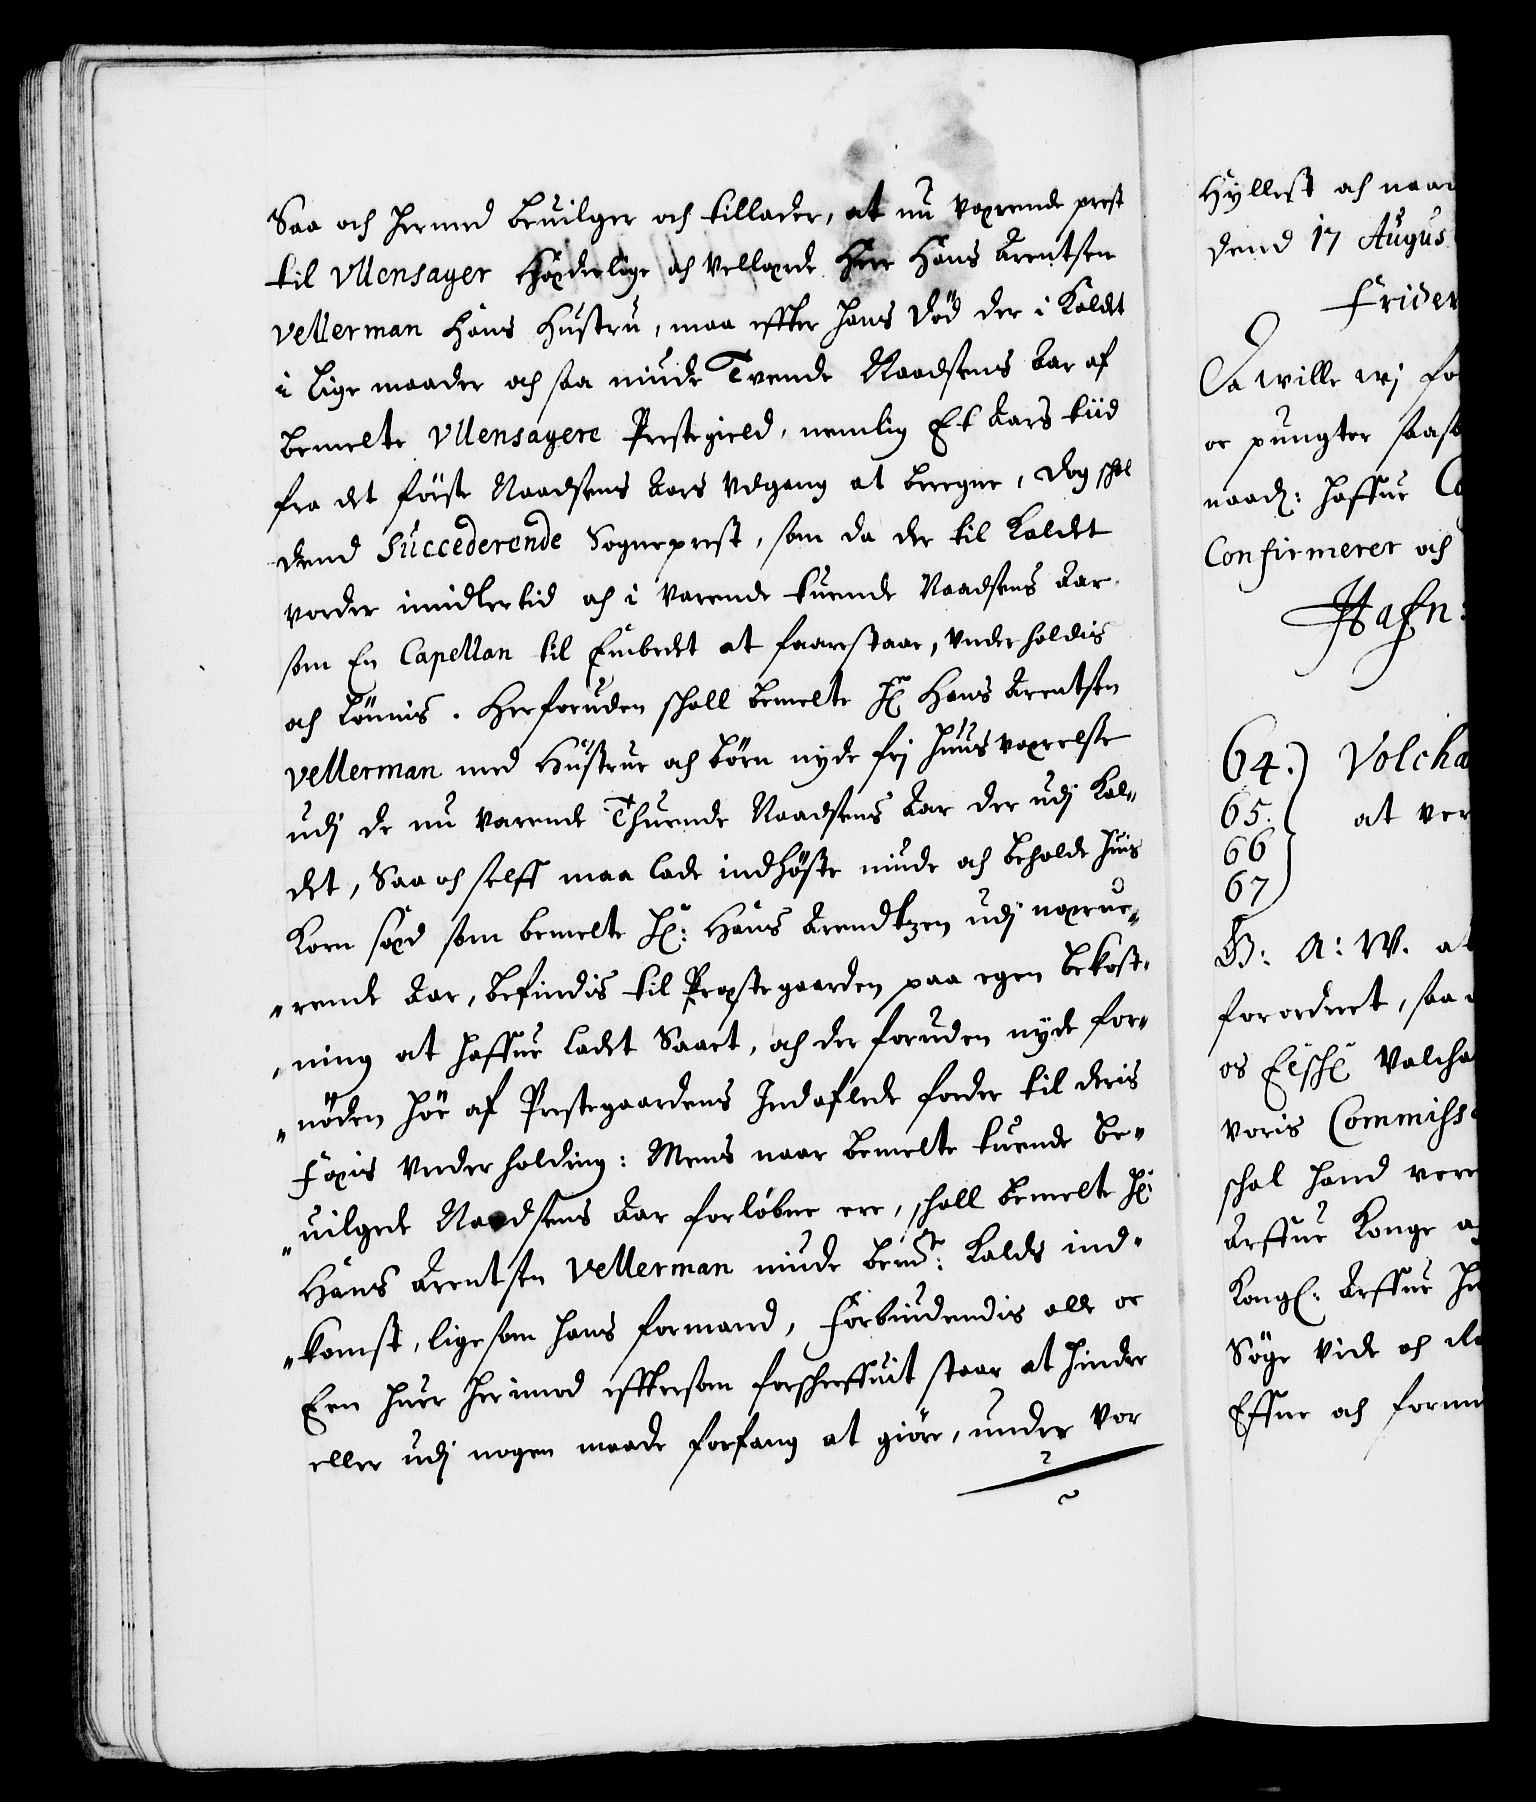 Saa och hermed beuilger och tillader, at nu værende prest
til Vllensager Hæderlige och Vellærde Herr Hans Arentsen
Vellerman Hans Hustru, maa effter hans Död der i Kaldet
i lige maader och saa niude Tvende Naadsens Aar af
bemelte Vllensagers Prestegield, nemlig Et Aars tiid
fra det förste Naadsens Aars Udgang at beregne, Dog schal
dend Succederende Sogneprest, som da der til Kaldet
vorder imidlertid och i varende tuende Naadsens Aar
som En Capellan til Embedet at forrestaae, Vnderholdis
och lönnis. Herforuden schall bemelte Hr Hans Arentsen
Vellerman med Hustrue och börn nyde frj huusværelse
udj de nu varende Thuende Naadsens Aar der udj Kal-
det, Saa och selff maa lade indhöste niude och beholde huis
Korn sæd som bemelte Hr: Hans Arendtzen udj næruæ-
rende Aar, befindis til Præstegaarden paa egen bekost-
ning at haffue ladet Saaet, och der foruden nyde for-
nöden höe af Prestegaardens Indaflede foeder til deris
Fæis Vnderholding: Mens naar bemelte tuende be-
uilgede Naadsens Aar forløbne ere, schall bemelte Hr
Hans Arentsen Vellerman niude bemte: Kalds ind-
komst, ligesom hans formand, Forbiudendis alle oc
Een huer herimod effttersom forschreffuit staar at hinder
eller udj nogen maade forfang at giöre, under Vor
Hyllest och naad
dend 17 Augus
Frider
Da wille wj fo
oc pungter saas
naad: haffue Co
Confirmerer och
Hafn:
64.) Volcha
65. at ver
66
67
B: A: W. at
forordnet, saa
os Elsche Valcha
voris Commiss
schal hand vere
Arffue Konge
Kongl: Arffue
Söge vide och
Effne och formu